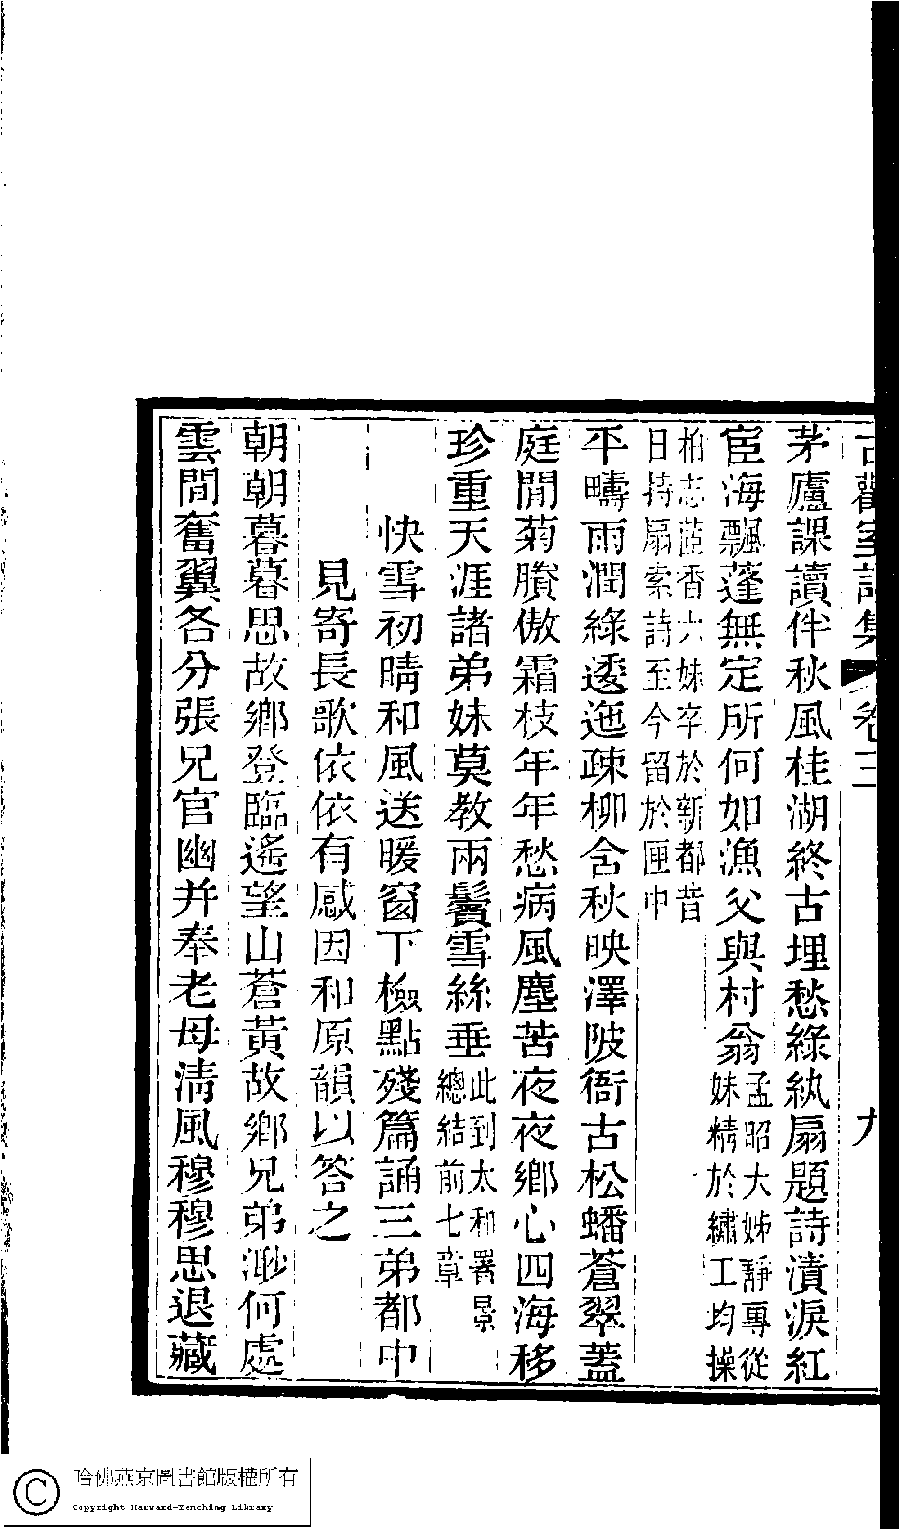 古歡室詩集 卷三 九
茅廬課讀伴秋風桂湖終古埋愁綠紈扇題詩漬淚紅
宦海飄蓬無定所何如漁父與村翁孟昭大姊靜專從
妹精於繡工均操
柏志蘐香六妹卒於新都昔
日持扇索詩至今留於匣中
平疇雨潤綠逶迤疎柳含秋映澤陂衙古松蟠蒼翠蓋
庭閒菊賸傲霜枝年年愁病風塵苦夜夜鄉心四海移
珍重天涯諸弟妹莫教兩鬢雪絲垂此到太和署景
總結前七章
快雪初晴和風送暖窗下檢點殘篇誦三弟都中
見寄長歌依依有感因和原韻以答之
朝朝暮暮思故鄉登臨遙望山蒼黃故鄉兄弟渺何處
雲間奮翼各分張兄官幽并奉老母清風穆穆思退藏
哈佛燕京圖書館版權所有
Copyright Harvard-Yenching Library